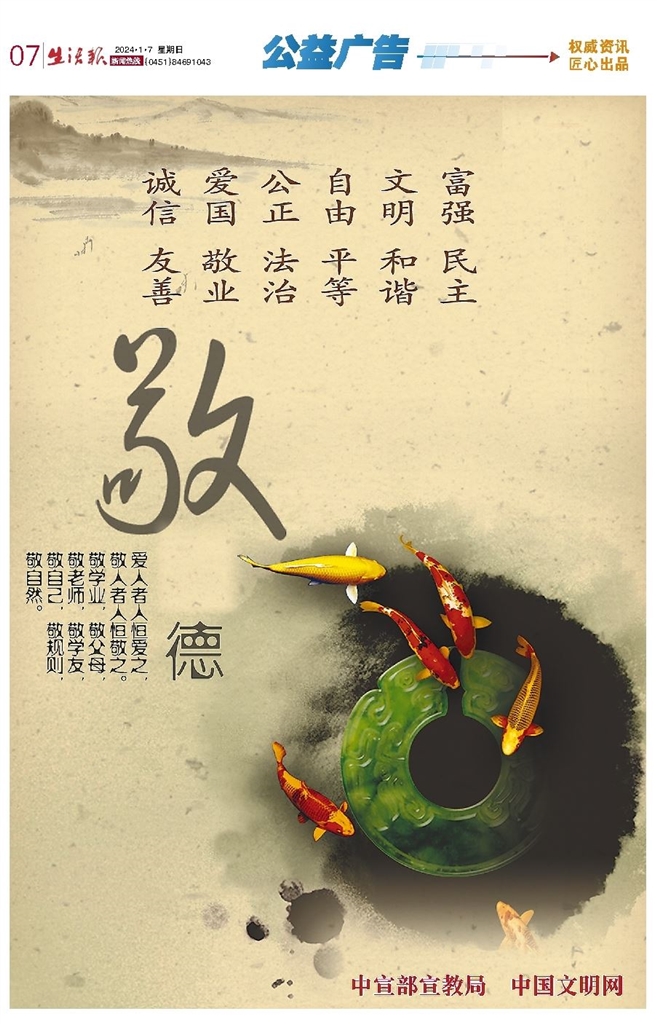 07 生活报 2024·1·7 星期日
新闻热线 (0451)84691043
公益广告
权威资讯
匠心出品
富强 民主
文明 和谐
自由 平等
公正 法治
爱国 敬业
诚信 友善
敬
德
爱人者人恒爱之，
敬人者人恒敬之。
敬学业，敬父母，
敬老师，敬学友，
敬自己，敬规则，
敬自然。
中宣部宣教局 中国文明网